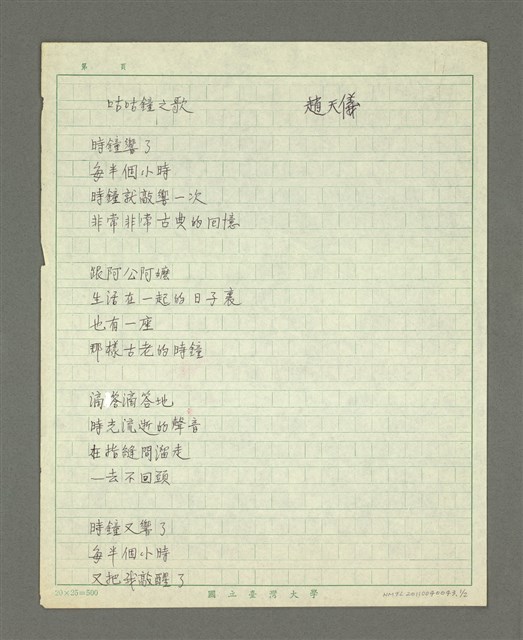 第 頁
咕咕鐘之歌 趙天儀
時鐘響了
每半個小時
時鐘就敲響一次
非常非常古典的回憶
跟阿公阿嬤
生活在一起的日子裏
也有一座
那樣古老的時鐘
滴答滴答地
時光流逝的聲音
在指縫間溜走
一去不回頭
時鐘又響了
每半個小時
又把我敲醒了
20×25=500 國立臺灣大學